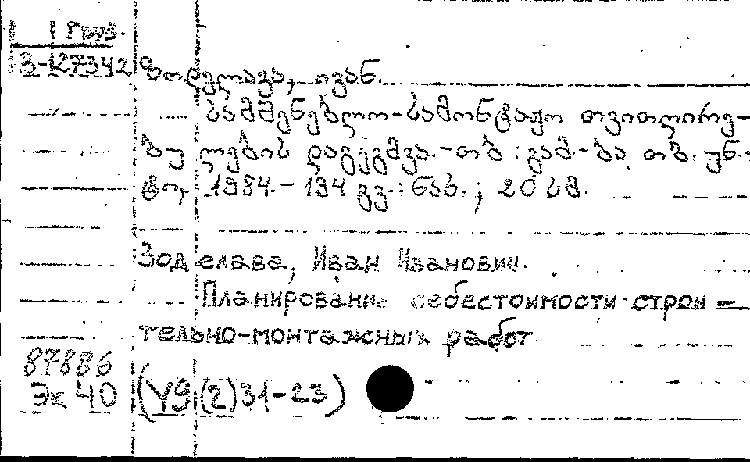 3-127342
ზოდელავა, ივან.
სამშენებლო-სამონტაჟო თვითღირე-
ბულების დაგეგმვა.-თბ.: გამ-ბა თბ. უნ-
ტი, 1984.- 194 გვ.: ნახ.; 20 სმ.
Зоделава, Иван Иванович.
Планирование себестоимости строи-
тельно-монтажных работ
87886
Эк 40 (У9(2)31-23)